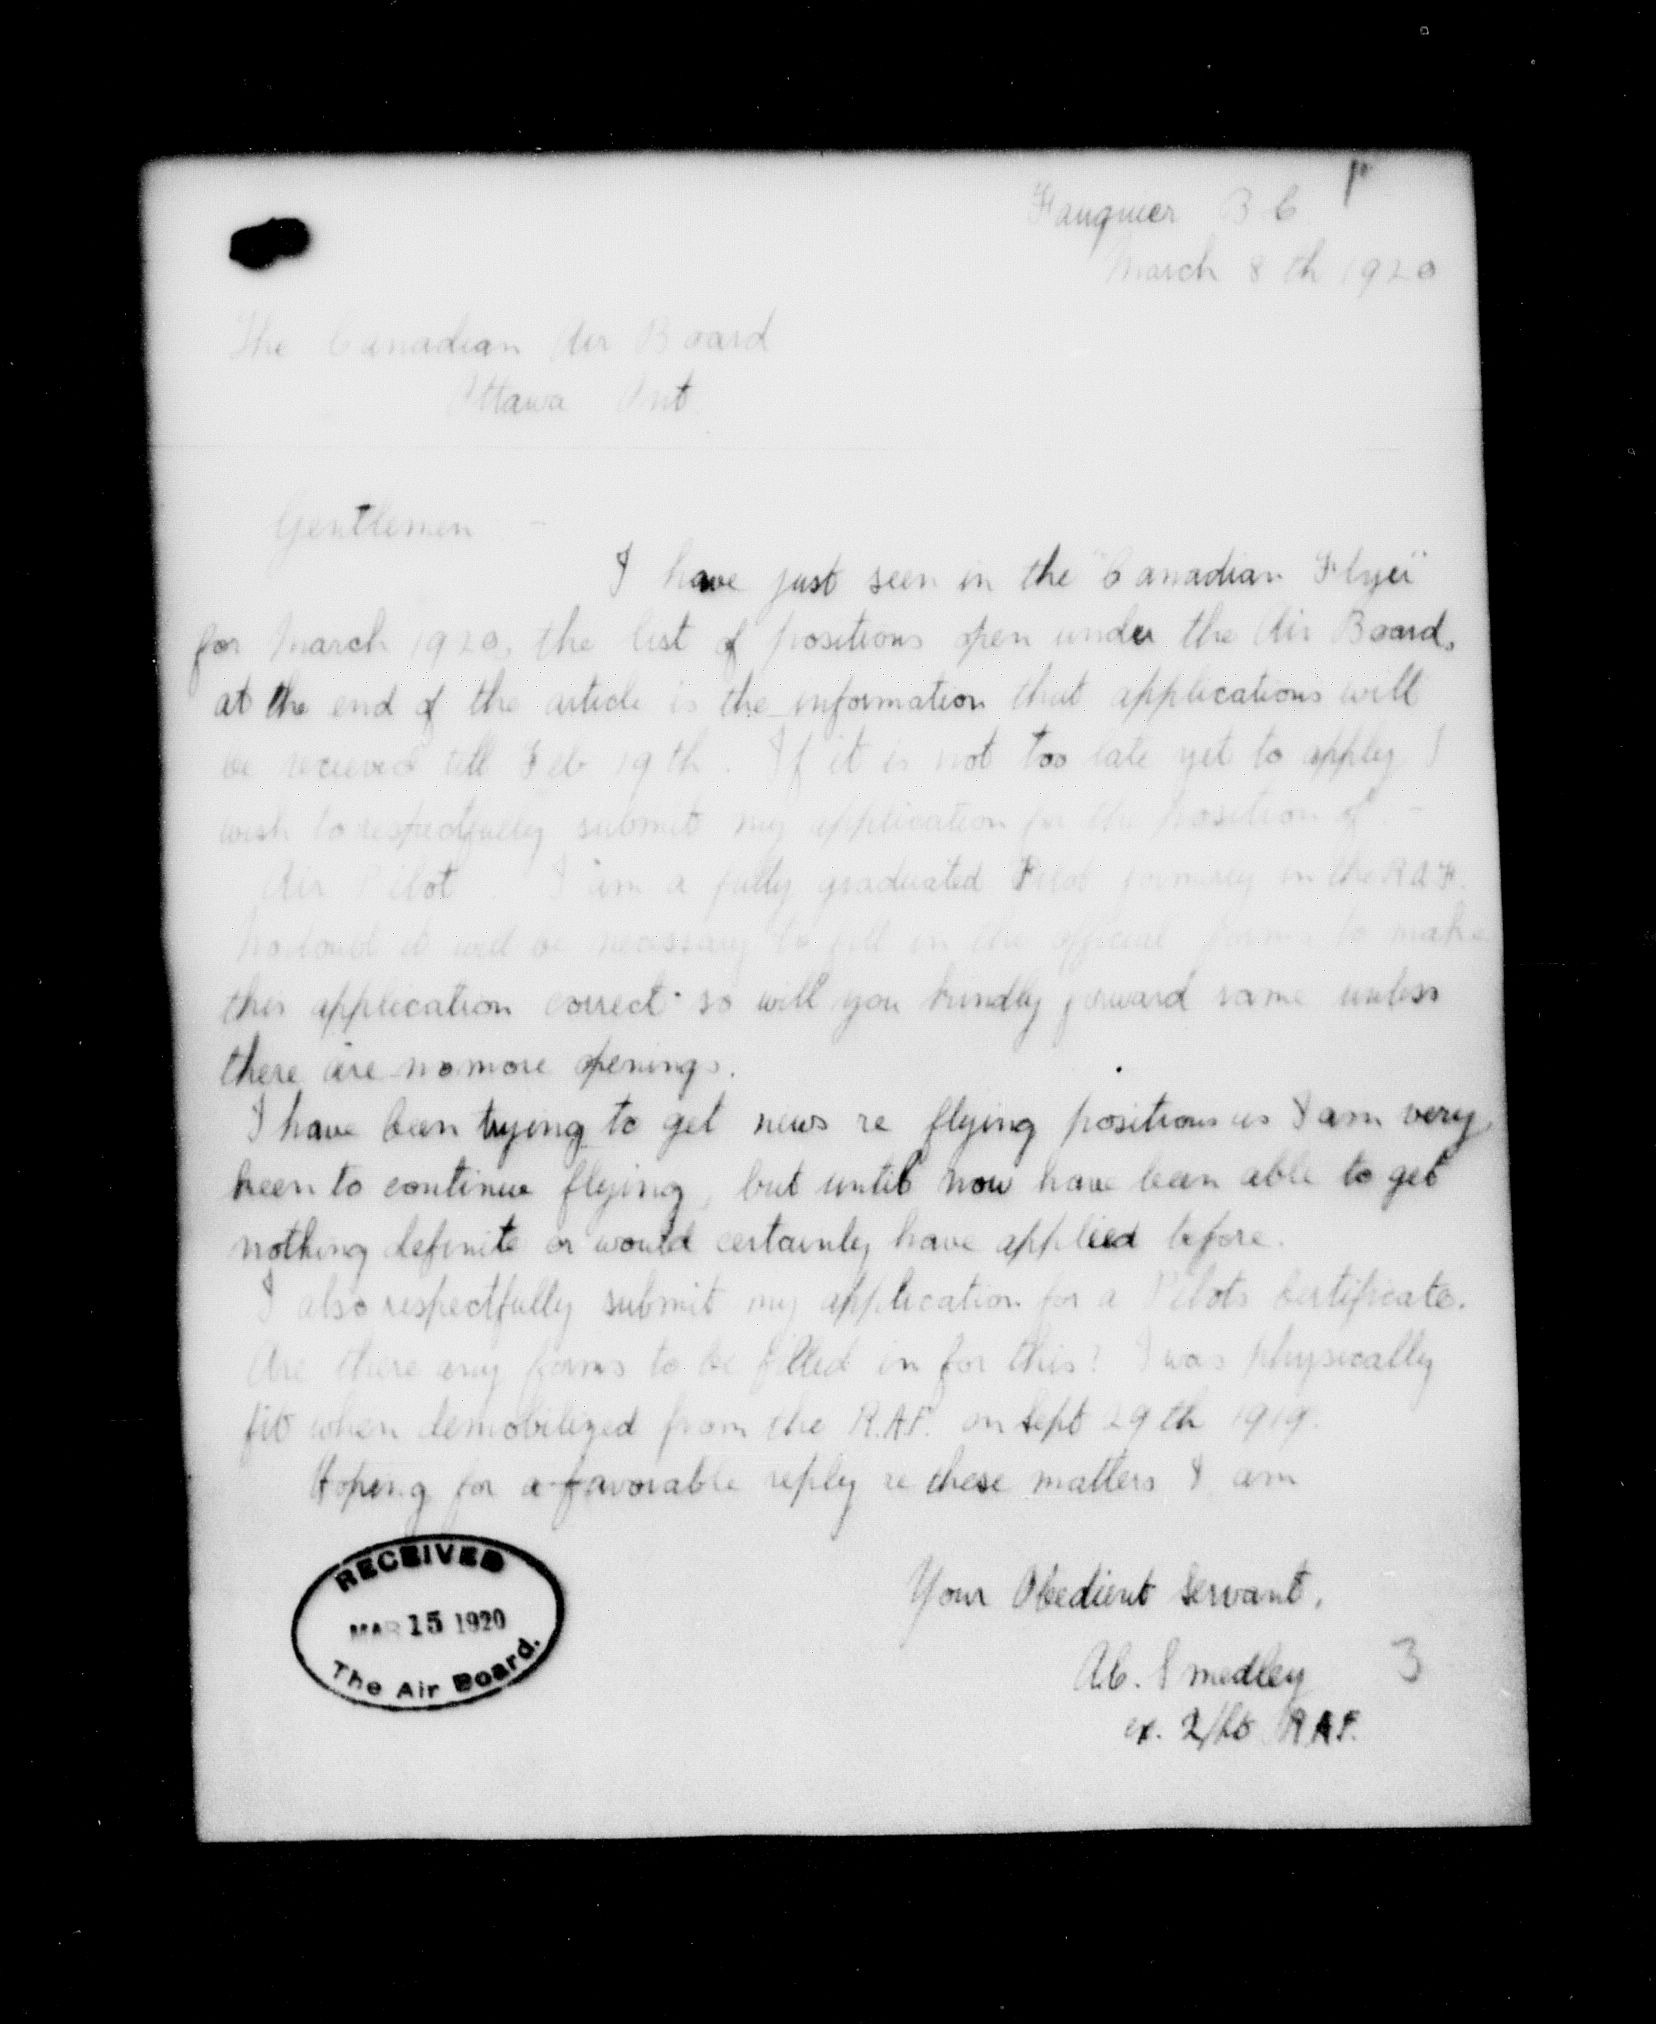 Fauquier B C
March 8 th 1920
The Canadian Air Board
Ottawa Ont
Gentlemen -
I have just seen in the "Canadian Flyer"
for March 1920, the list of positions open under the Air Board,
at the end of the article is the information that applications will
be recieved till Feb 19 th. If it is not too late yet to apply I
wish to respectfully submit my application for the position of -
Air Pilot. I am a fully graduated Pilot formerly in the R A F.
No doubt it will be necessary to fill in the official forms to make
this application correct so will you kindly forward same unless
there are no more openings.
I have been trying to get news re flying positions as I am very
keen to continue flying, but until now have been able to get
nothing definite or would certainly have applied before.
I also respectfully submit my application for a Pilots Certificate.
Are there any forms to be filled in for this? I was physically
fit when demobilized from the R.A.F. on Sept 29 th 1919.
Hoping for a favorable reply re these matters I am
Your Obedient Servant,
A.C. Smedley
ex. 2/Lt R.A.F.
3
RECEIVED
MAR 15 1920
The Air Board.